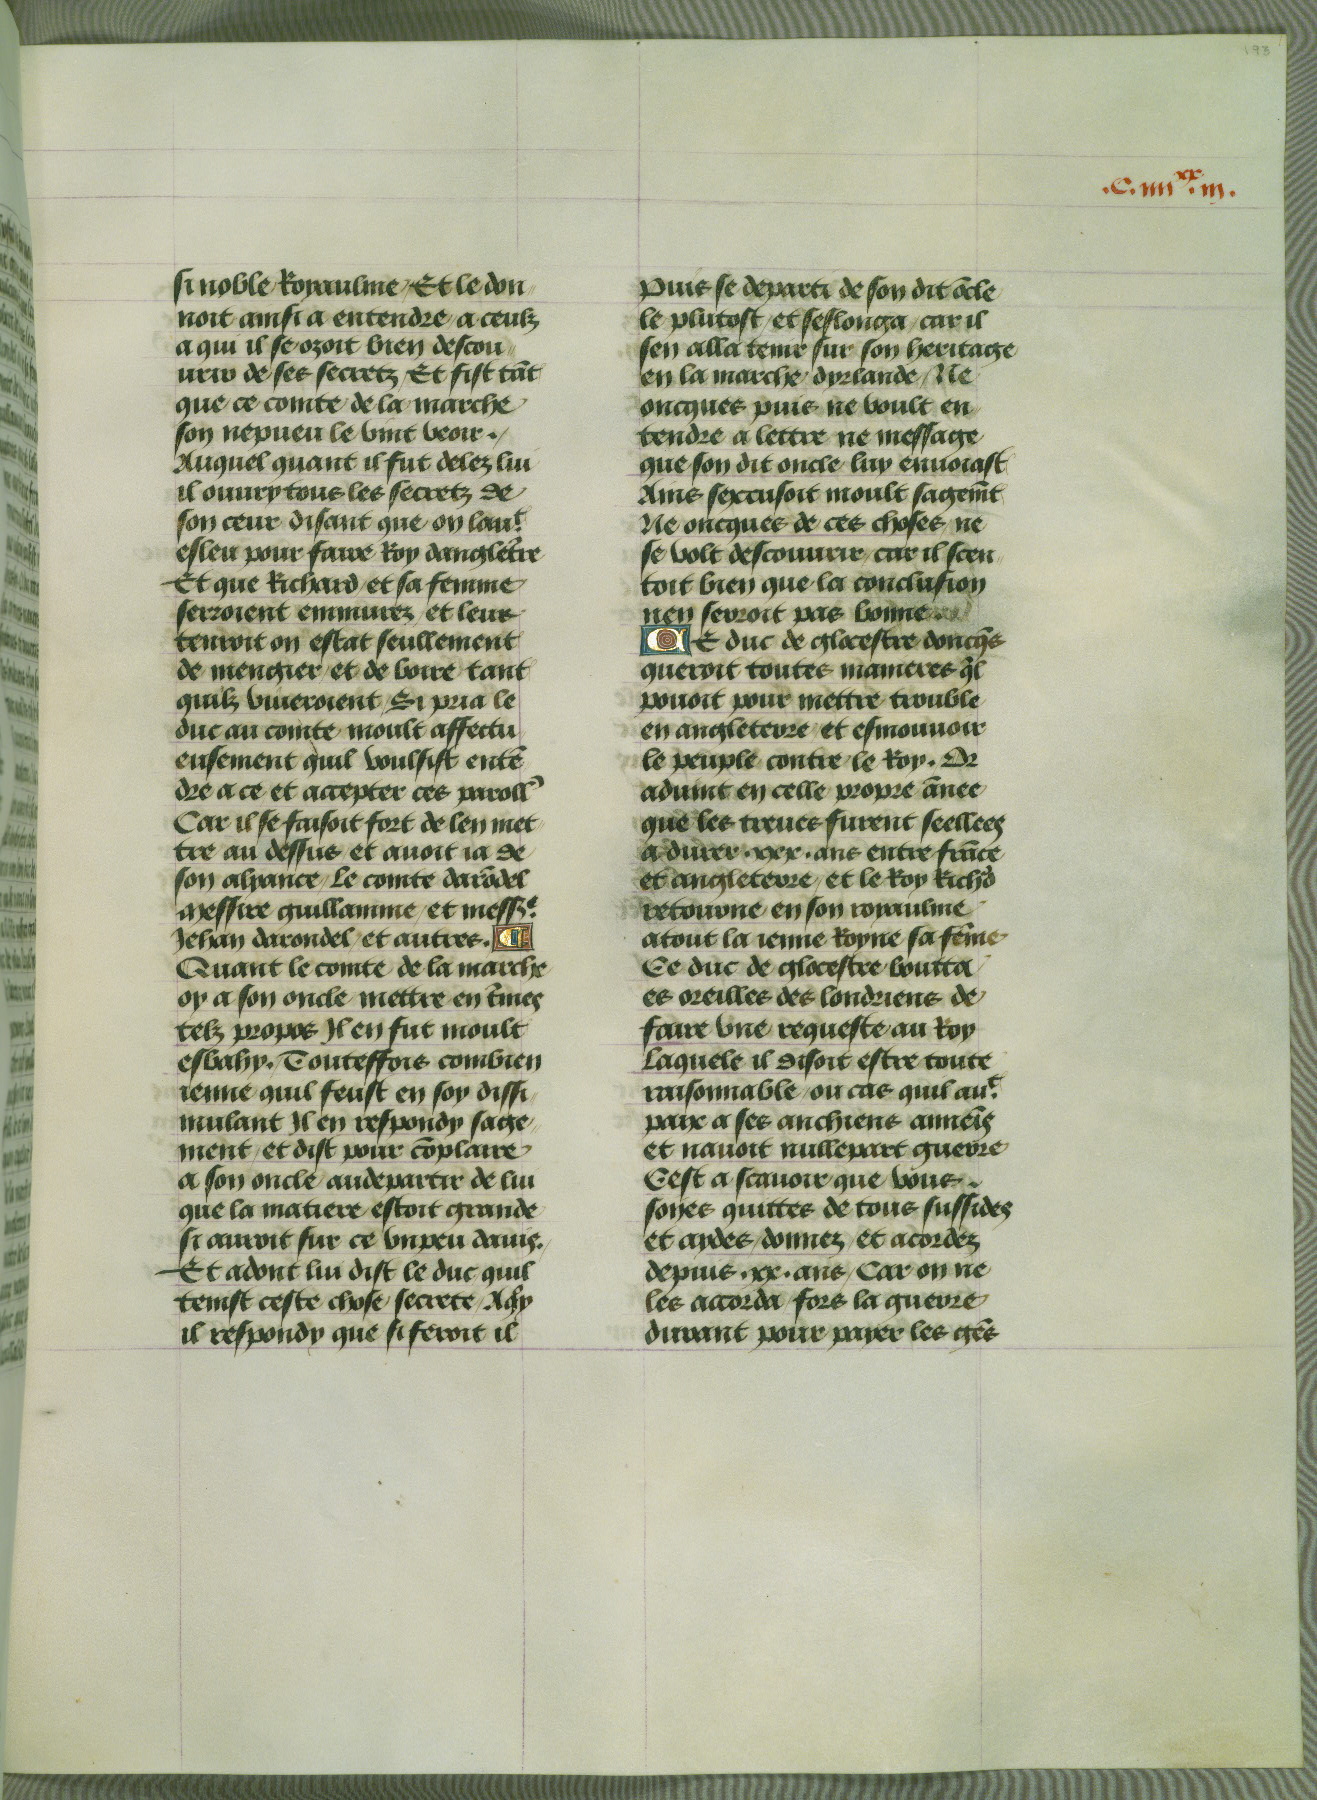 193
.C.iiii^xx.iij.
si noble Royaulme / Et le don
noit ainsi a entendre a ceulz
a qui il se ozoit bien descou
urir de ses secretz / Et fist tāt
que ce comte de la marche
son nepueu le vint veoir. /
Auquel quant il fut delez lui
il ouury tous les secretz de
son ceur disant que on lauᵗ
esleu pour faire Roy danglet̄re
Et que Richard et sa femme
serroient emmurez et leur
tenroit on estat seullement
de mengier et de boire tant
quilz viueroient / Si pria le
duc au comte moult affectu
eusement quil voulsist entē
dre a ce et accepter ces paroll'
Car il se faisoit fort de len met
tre au dessus et auoit ia de
son alyance / Le comte darōdel
Messire guillamme / et messᵉ.
Jehan darondel / et autres.
Quant le comte de la marche
oy a son oncle mettre en t̄mes
telz propos Il en fut moult
esbahy. Touteffois combien
ienne quil feust en soy dissi
mulant Il en respondy sage
ment / et dist pour cōplaire
a son oncle audepartir de lui
que la matiere estoit grande
si auroit sur ce vn peu dauis. /
Et adont lui dist le duc quil
tenist ceste chose secrete / Ad̄
il respondy que si feroit il
Puis se departi de son dit ōcle
le plutost / et seslonga / car il
sen alla tenir sur son heritage
en la marche dyrlande / Ne
oncques puis ne voult en
tendre a lettre ne message
que son dit oncle luy enuoiast
Ains sexcusoit moult sagem̄t
Ne oncques de ces choses ne
se volt descouurir car il scen
toit bien que la conclusion
nen seroit pas bonne
LE duc de glocestre doncq̄s
queroit toutes manieres q̄l
pouoit pour mettre trouble
en angleterre et esmouuoir
le peuple contre le Roy. Or
aduint en celle propre ānee
que les treues furent seellees
a durer .xxx. ans entre frāce
et angleterre / et le Roy Richᵈ
retourne en son royaulme
atout la ienne Royne sa fēme
Ce duc de glocestre boutta
es oreilles des londriens de
faire vne requeste au Roy
Laquele il disoit estre toute
raisonnable / ou cas quil auᵗ
paix a ses anchiens annem̄s
et nauoit nullepart guerre
Cest a scauoir que vous.
soyes quittes de tous sussides
et aydes / donnez / et acordez
depuis .xx. ans / Car on ne
les accorda fors la guerre
durant pour payer les gēs